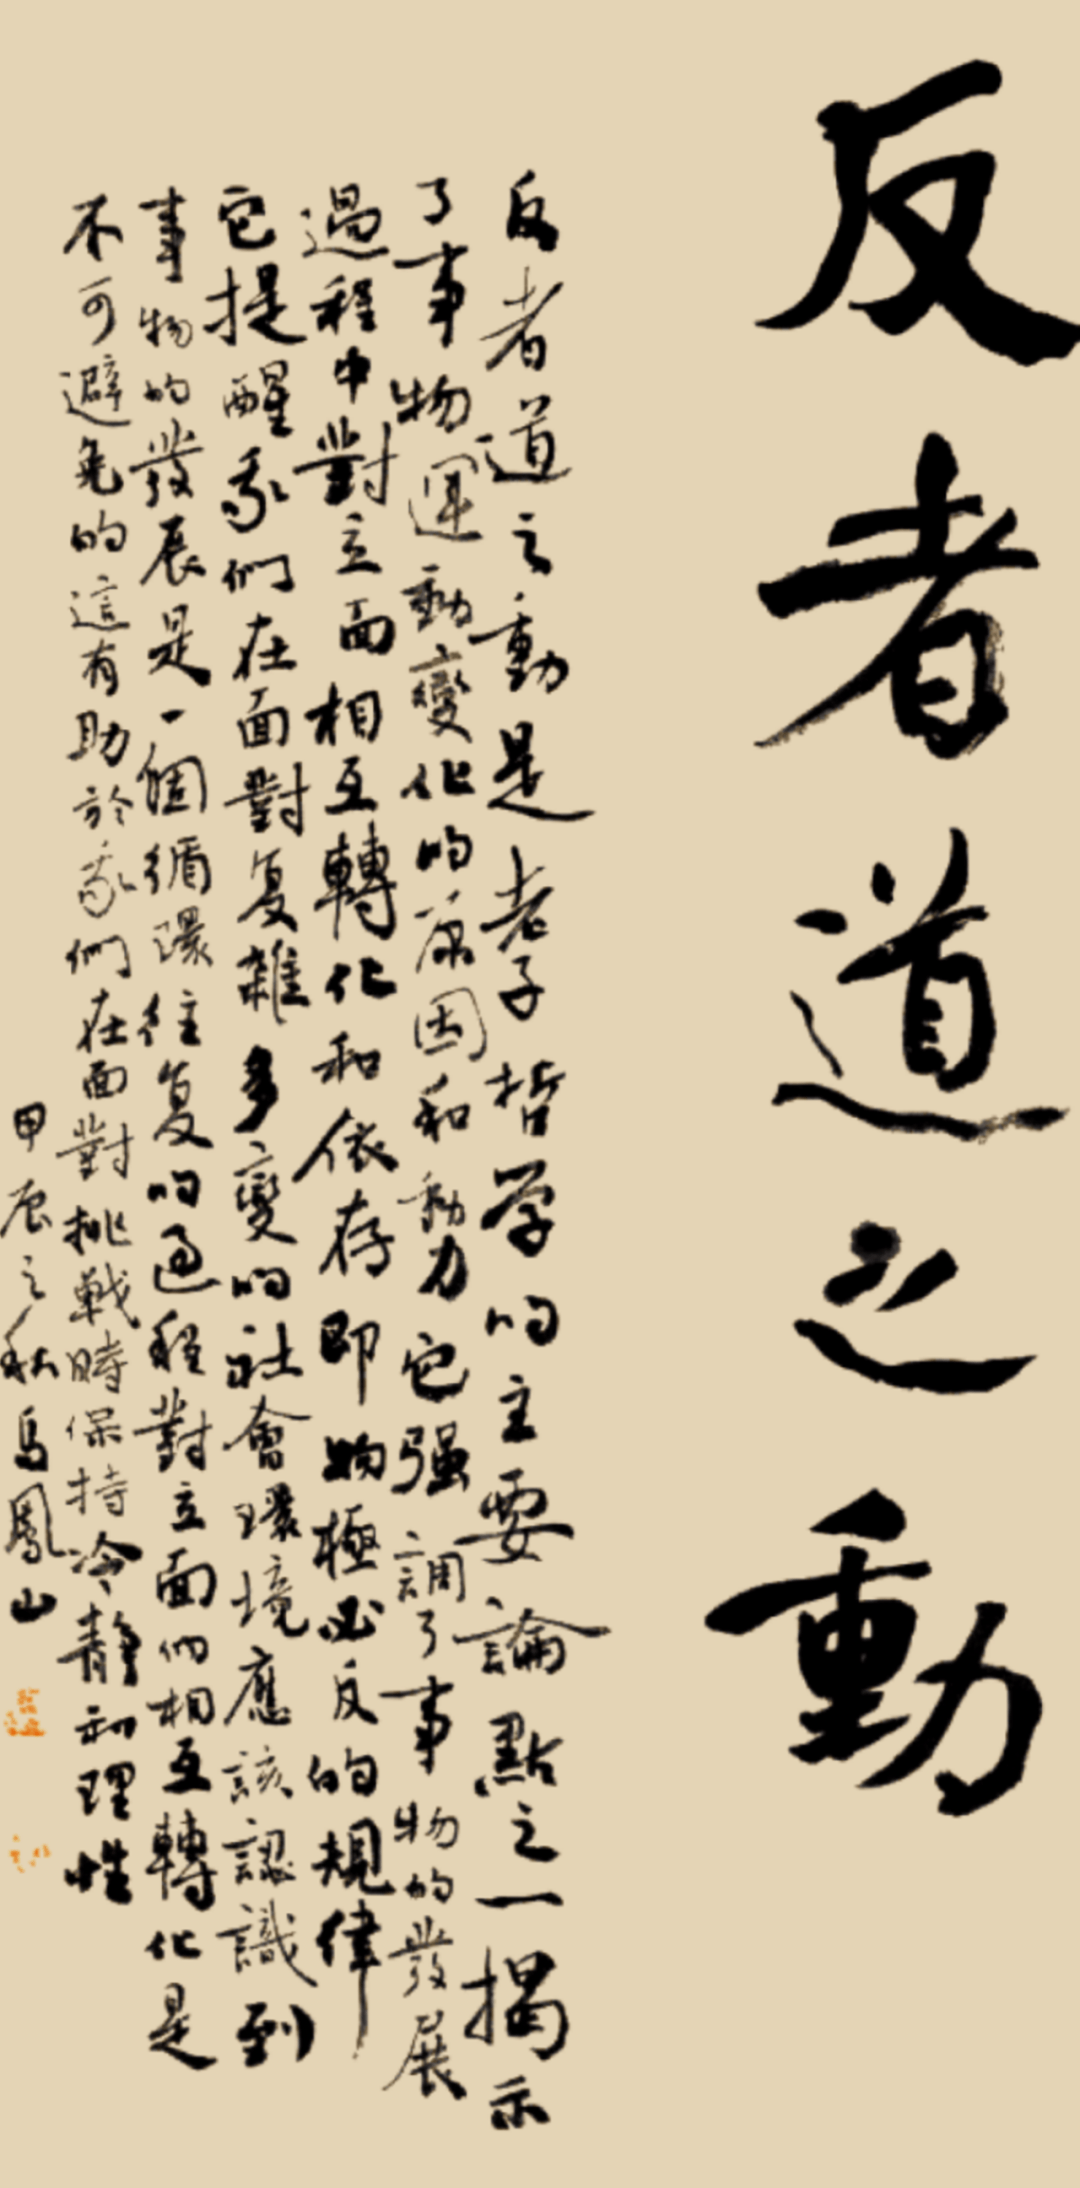 反者道之動
反者道之動是老子哲学的主要論點之一揭示
了事物運動變化的原因和動力它强調了事物的發展
過程中對立面相互轉化和依存即物極必反的規律
它提醒我們在面對复雜多變的社會環境應該認識到
事物的發展是一個循環往复的過程對立面的相互轉化是
不可避免的這有助於我們在面對挑戰時保持冷靜和理性
甲辰之秋馬鳳山